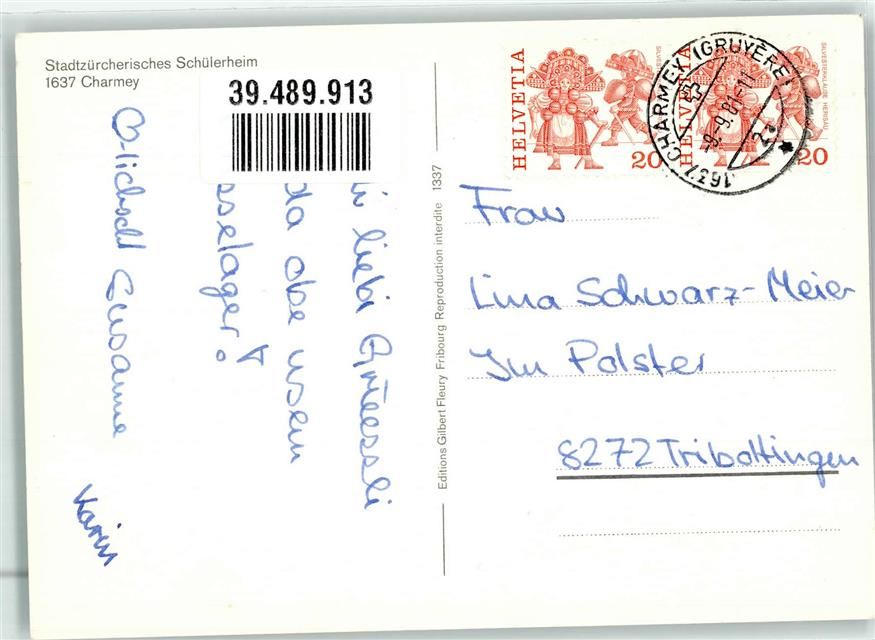 Stadtzürcherisches Schülerheim
1637 Charmey
39.489.913
liebi Grüessli
da obe usem
sselager!
Susanne
Karin
Editions Gilbert Fleury Fribourg Reproduction interdite 1337
HELVETIA
20
HELVETIA
SILVESTERKLÄUSE HERISAU
20
1637 CHARMEY (GRUYÈRE)
-9.-9.81-11
Frau
Lina Schwarz-Meier
Im Polster
8272 Triboltingen